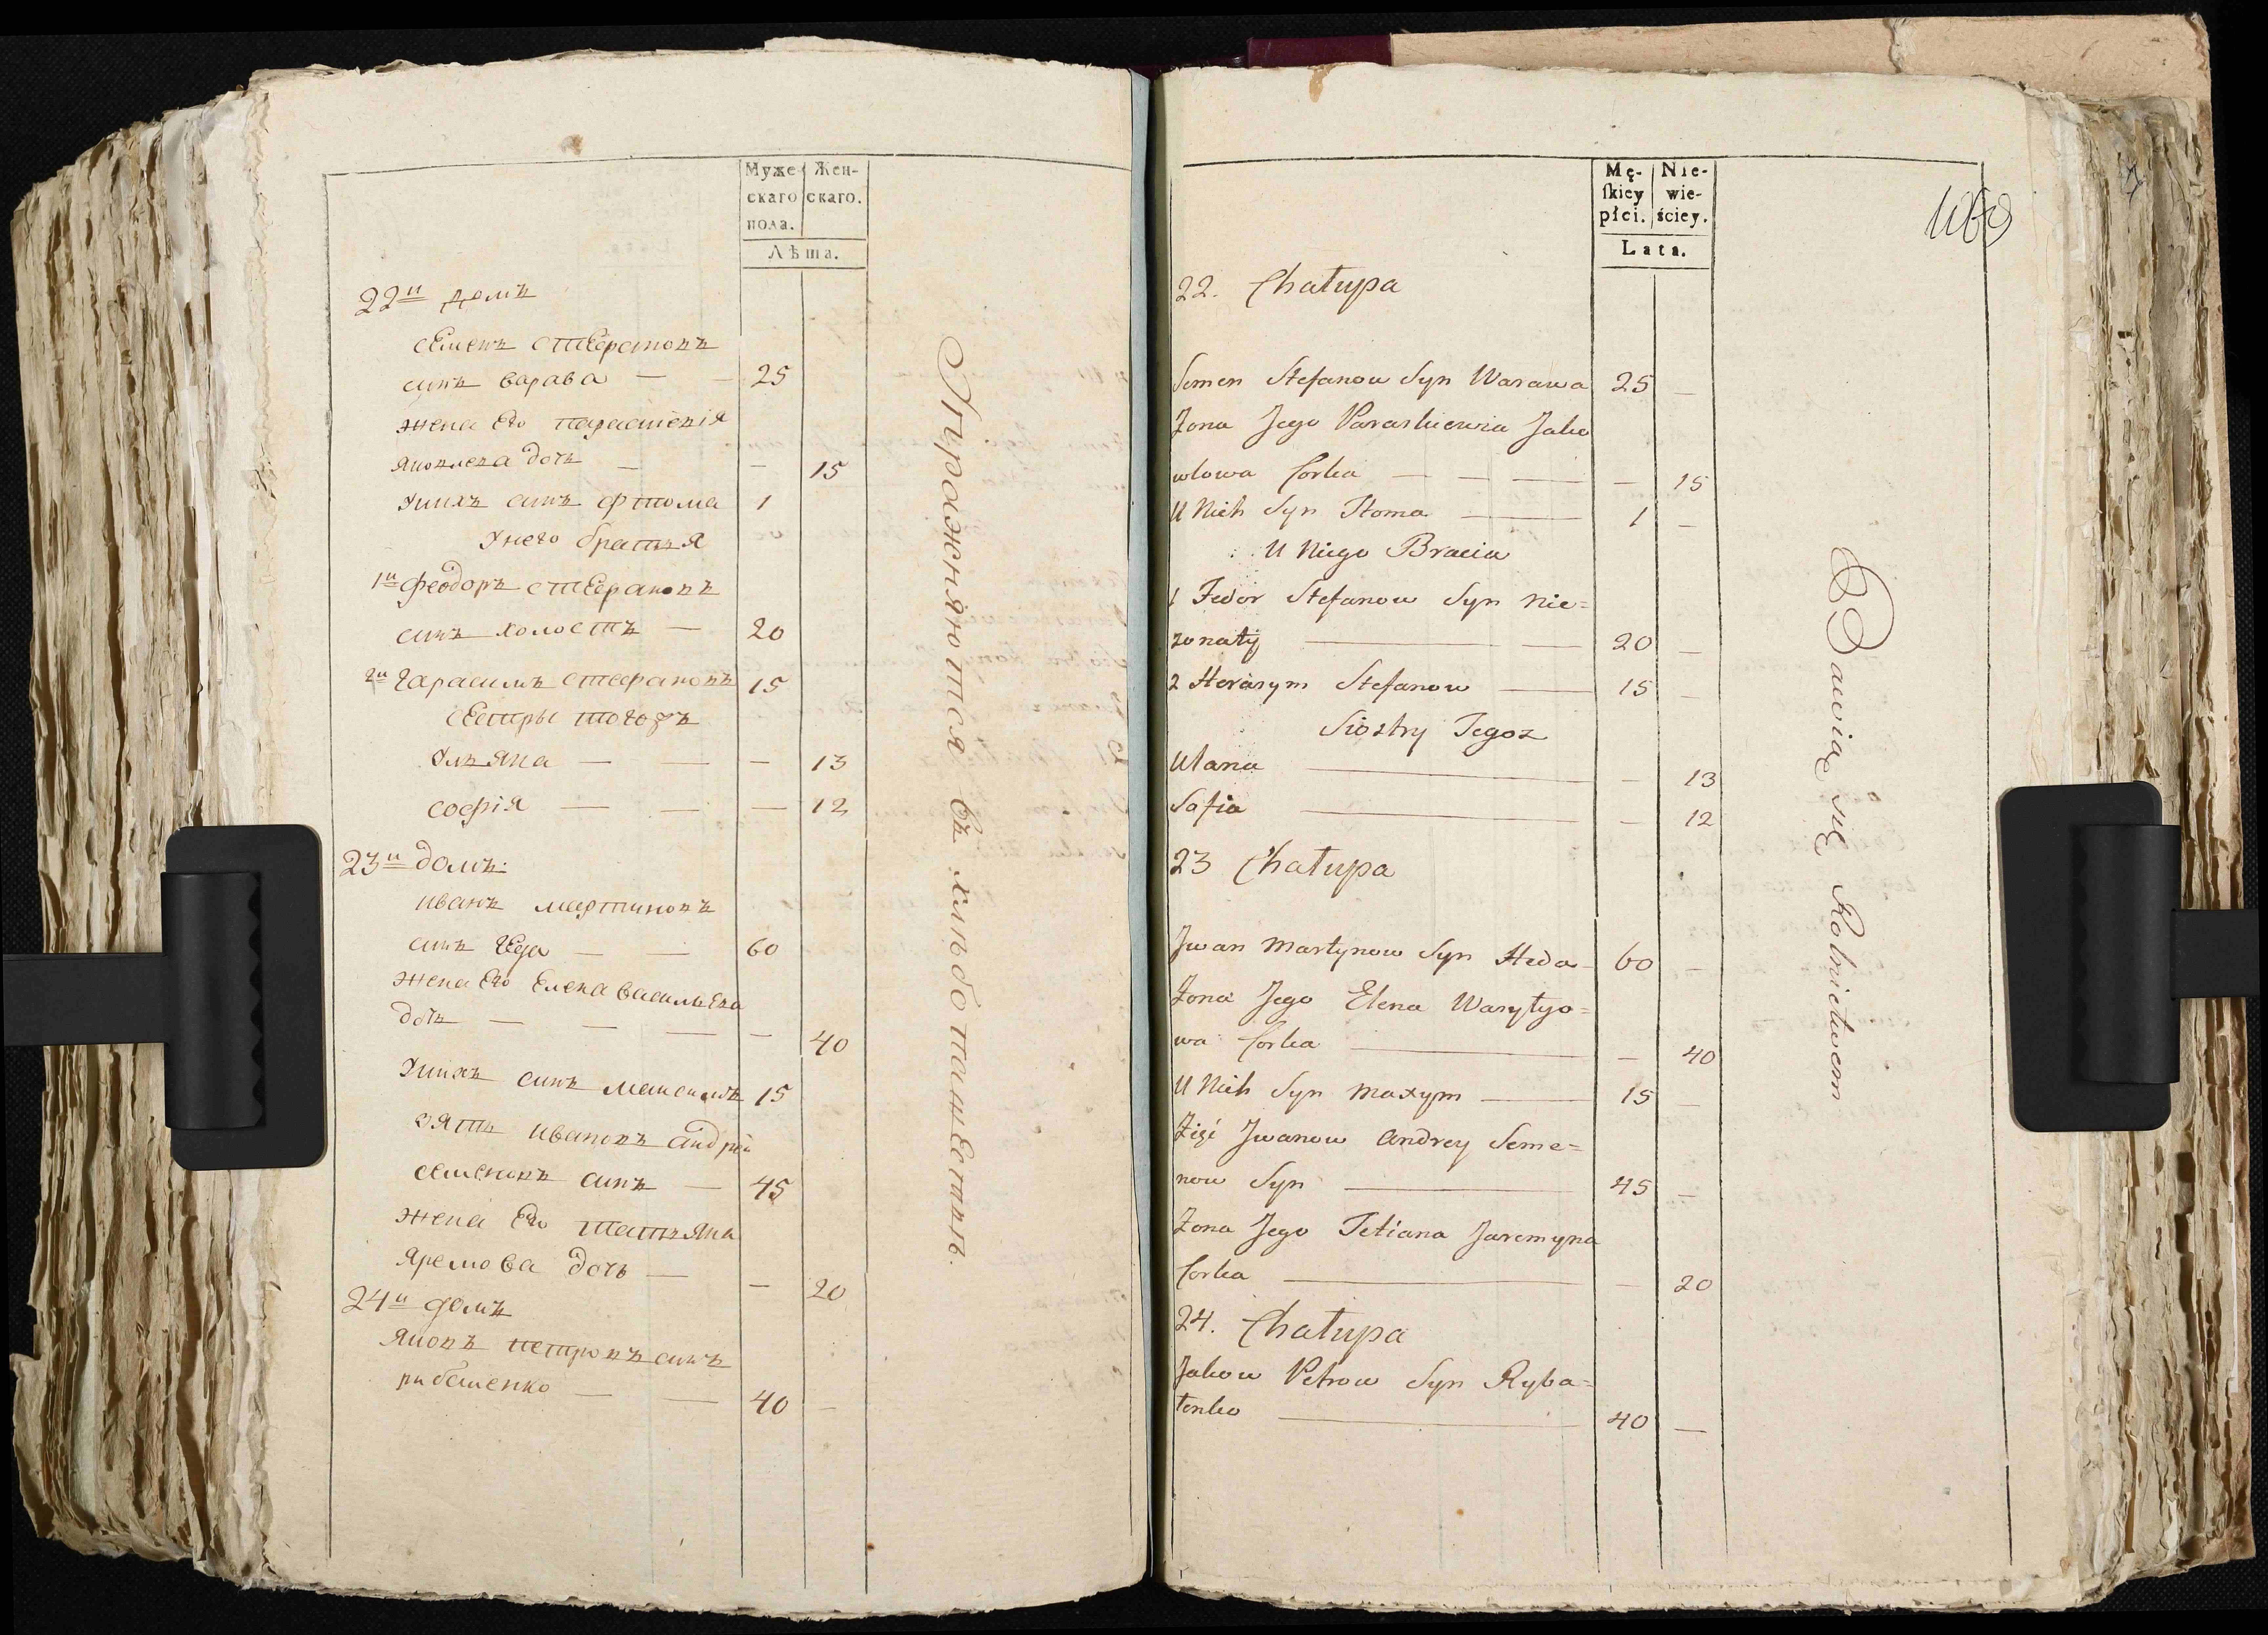 Муже-
скаго
пола.
Жен-
скаго.
Лѣта.
22й домъ
Семенъ Стефановъ
синъ варава — — 25
жена Его параскевія
яковлева дочъ — — 15
Унихъ синъ фтома 1
Унего братья
1й феодоръ Стефановъ
синъ холостъ — 20
2й Гарасимъ Стефановъ 15
сестры тогожъ
Ульяна — — — 13
софія — — — 12
23й домъ:
иванъ мартиновъ
синъ — — 60
жена Его Елена васильева
дочъ — — — — 40
Унихъ синъ максимъ 15
зять ивановъ андрей
семеновъ синъ — 45
жена Его татьяна
яремова дочь — — 20
24й домъ
яковъ петровъ синъ
— — 40 —
Упражняются въ хлѣбопашествѣ.
Mę-
skiey
płci.
Nie-
wie-
ściey.
Lata.
1069
22. Chałupa
Semen Stefanow Syn Warawa 25 —
Zona Jego Paraskiewia Jako
wlowa Corka — — — — 15
U Nich Syn Ftoma — 1 —
U Niego Bracia
1 Fedor Stefanow Syn nie=
zonaty — — 20 —
2 Herasym Stefanow — 15 —
Siostry Tegoz
Ulana — — 13
Sofia — — 12
23 Chałupa
Jwan Martynow Syn Heda — 60 —
Zona Jego Elena Wasylyo=
wa Corka — — 40
U Nich Syn Maxym — 15 —
Zięć Jwanow Andrey Seme=
now Syn — 45 —
Zona Jego Tetiana Jaremyna
Corka — — 20
24. Chałupa
Jakow Petrow Syn Ryba=
— 40 —
Bawią się Rolnictwem